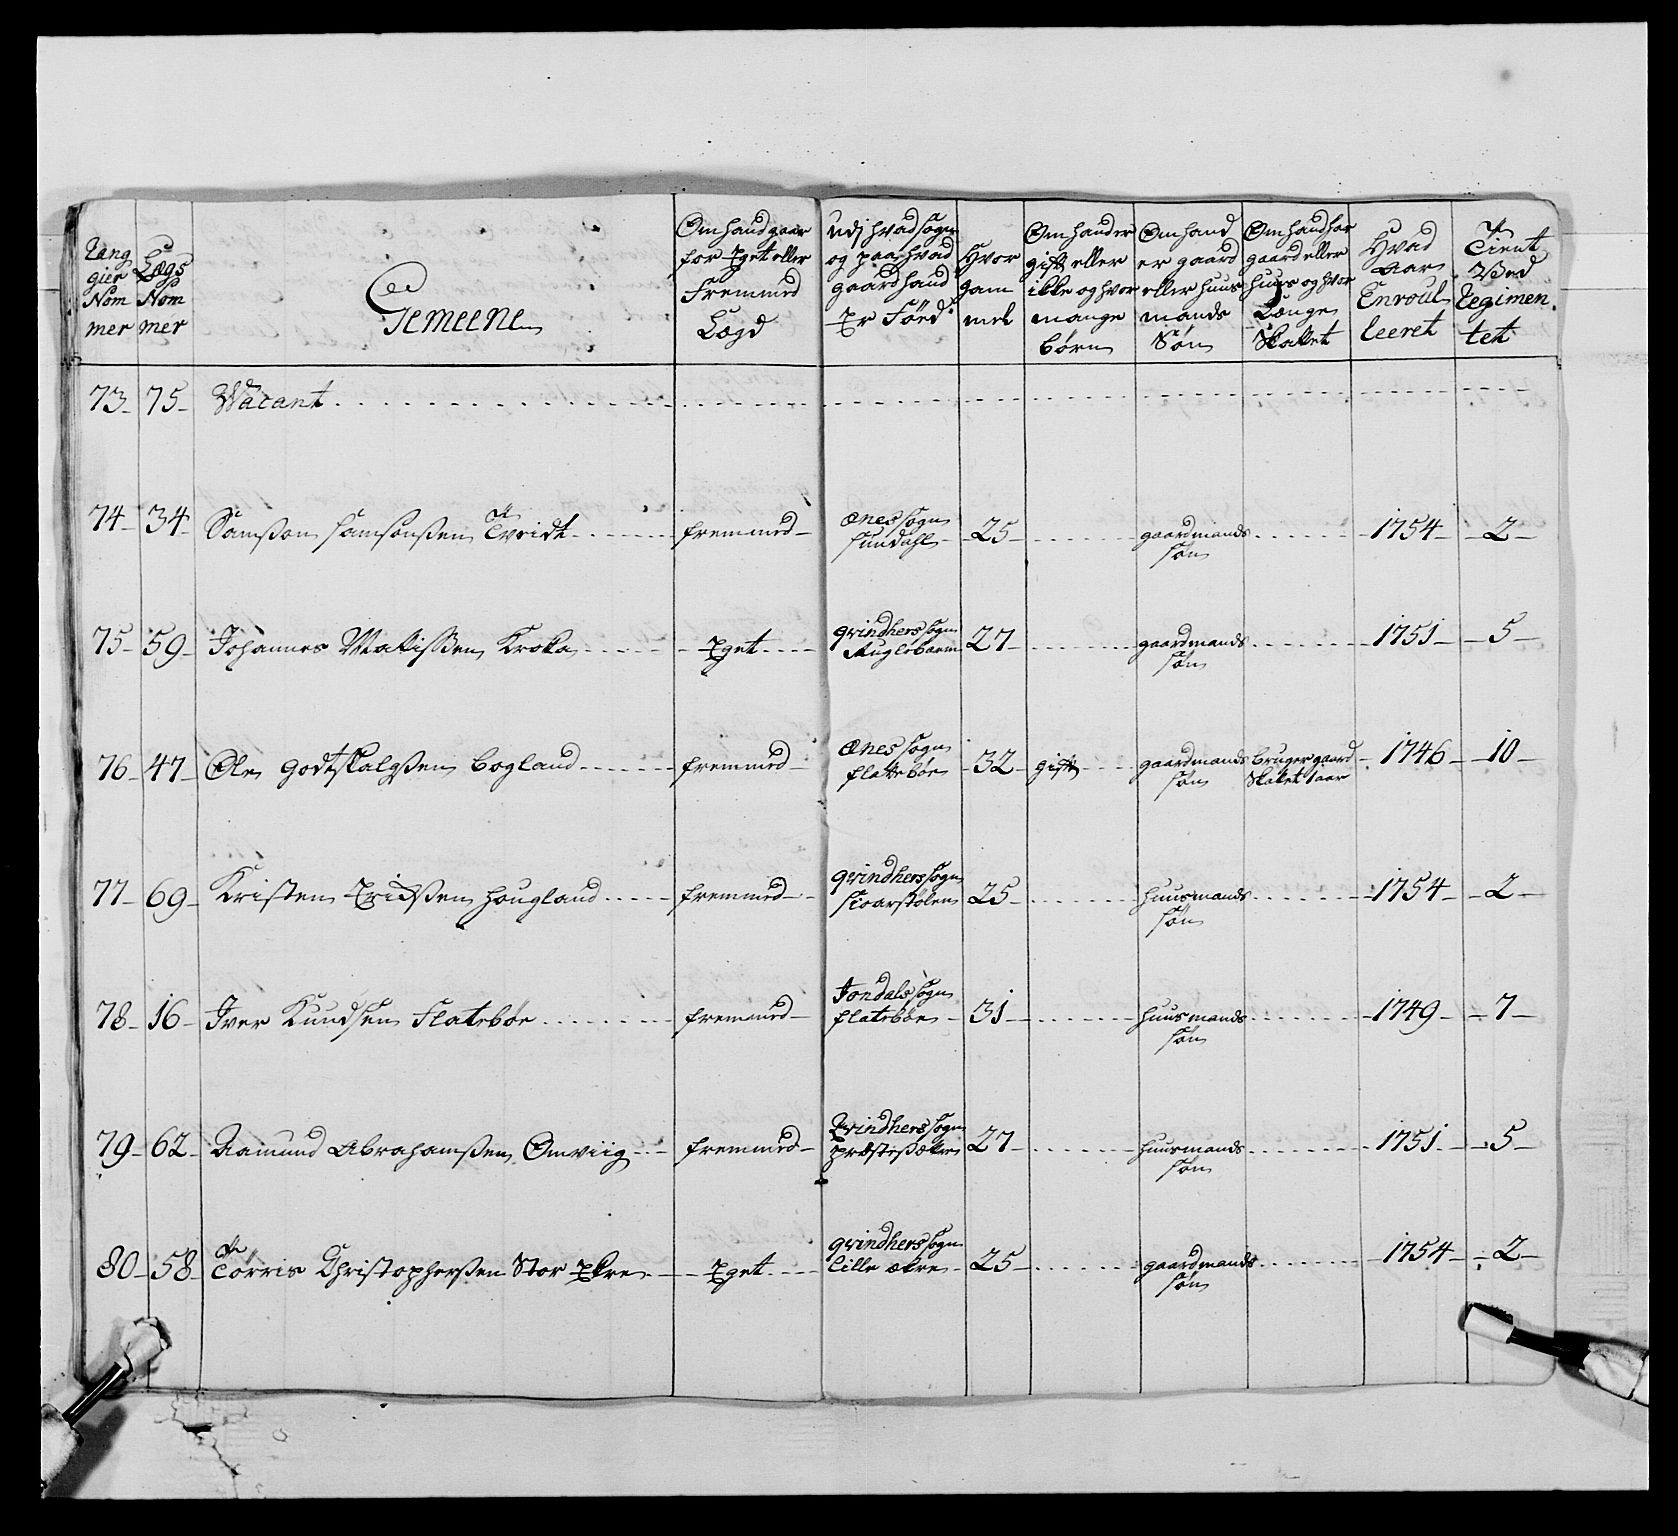 Rang gier Nom mer | Lægs Nom mer | Gemeene | Om hand gaar for Eget eller Fremmed Lægd | Udj hvad sogn og paa hvad gaard hand Er Föed | Hvor gam mel | Om hand er gift eller ikke og hvor mange börn | Om hand er gaard eller huus mands Sön | Om hand har gaard eller huus og hvor Længe Skattet | Hvad Aar Enroul leeret | Tient Ved Regimen tet
73 | 75 | Vacant
74 | 34 | Samsøn Samsønsen Tvridt | fremmed | Ænes sogn Sundahl | 25 | | gaardmands søn | | 1754 | 2
75 | 59 | Johannes Matissen Kroka | Eget | qvindhers sogn Auglebarm | 27 | | gaardmands søn | | 1751 | 5
76 | 47 | Ole Godtskalgsen Bogland | fremmed | Ænes sogn flattebøe | 32 | gift | gaardmands søn | bruger gaard Skattet 1 aar | 1746 | 10
77 | 69 | Kristen Erichsen Hougland | fremmed | qvindhers sogn Sioarstølen | 25 | | huusmands søn | | 1754 | 2
78 | 16 | Iver Knudsen Flatebøe | fremmed | Jondals sogn flatebøe | 31 | | huusmands søn | | 1749 | 7
79 | 62 | Aamund Abrahamsen Omviig | fremmed | Qvindhers sogn præstesækre | 27 | | huusmands søn | | 1751 | 5
80 | 58 | Torris Christophersen Stor Ekre | Eget | qvindhers sogn lille ækre | 25 | | gaardmands søn | | 1754 | 2